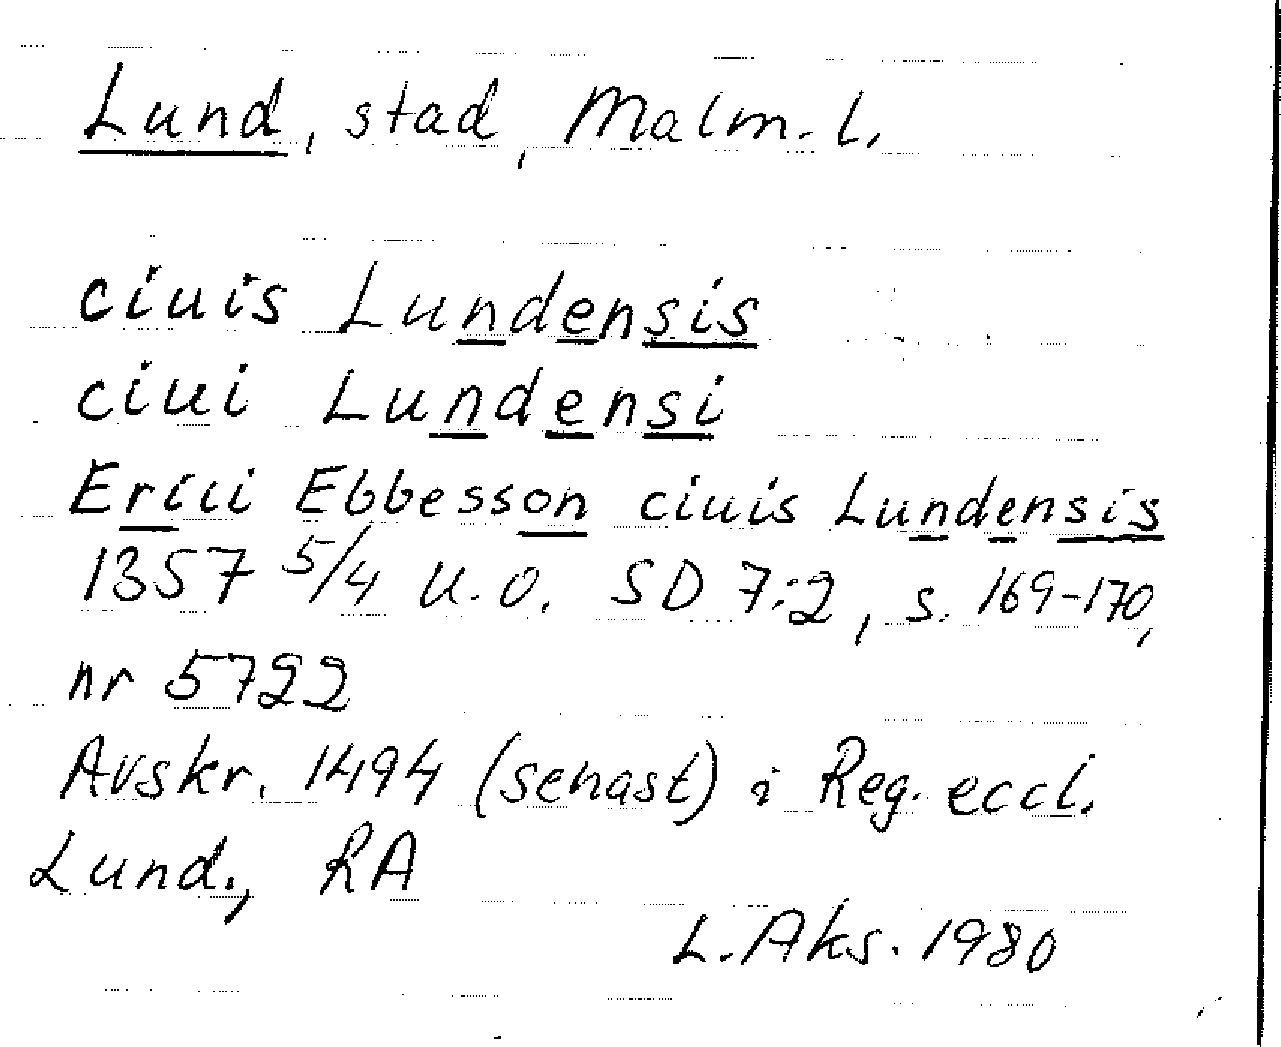 Lund, stad, Malm. l.
ciuis Lundensis
ciui Lundensi
Ercii Ebbesson ciuis Lundensis
1357 5/4 u.o. SD 7:2, s. 169-170,
nr 5722
Avskr. 1494 (senast) i Reg. eccl.
Lund., RA
L. Aks. 1980